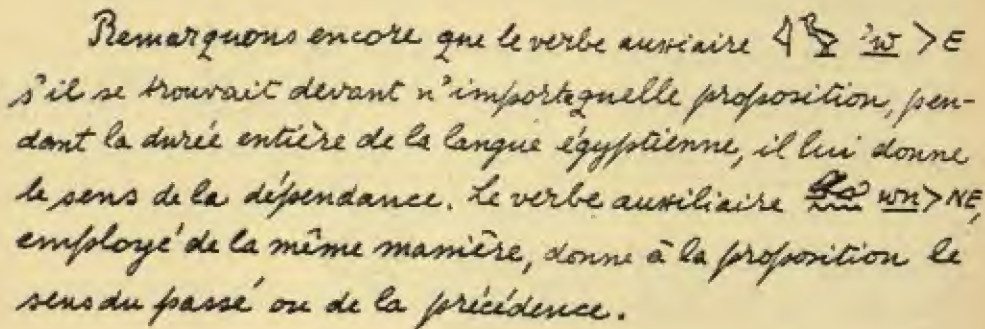 Remarquons encore que le verbe auxiaire 𓇋𓅱 ꜣw > E
s'il se trouvait devant n'importe quelle proposition, pen-
dant la durée entière de la langue égyptienne, il lui donne
le sens de la dépendance. Le verbe auxiliaire wn > NE,
employé de la même manière, donne à la proposition le
sens du passé ou de la précédence.